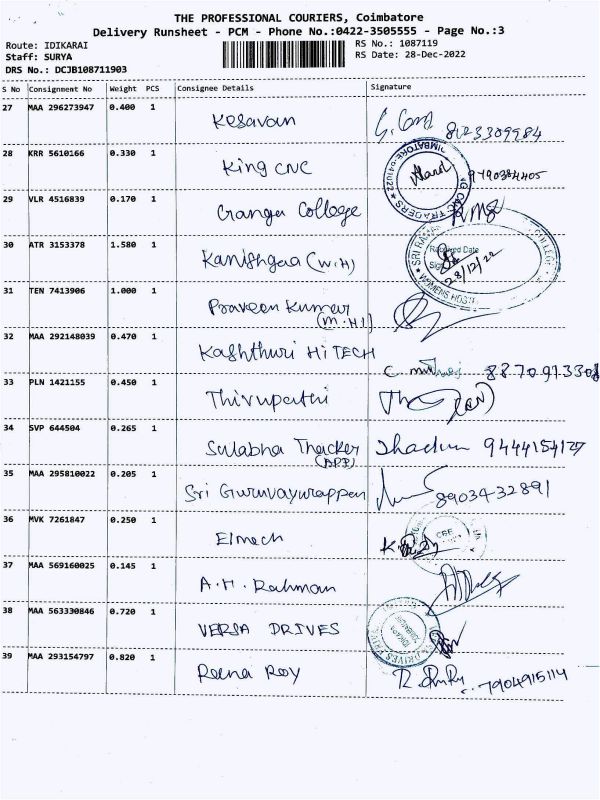 THE PROFESSIONAL COURIERS, Coimbatore
Delivery Runsheet - PCM - Phone No.:0422-3505555 - Page No.:3
Route: IDIKARAI RS No.: 1087119
Staff: SURYA RS Date: 28-Dec-2022
DRS No.: DCJB108711903
S No Consignment No Weight PCS Consignee Details Signature
27 MAA 296273947 0.400 1 Kesavan
28 KRR 5610166 0.330 1 King CNC
29 VLR 4516839 0.170 1 Ganga College
30 ATR 3153378 1.580 1 Kanishgaa (W.H) Received Date 28/12/22
31 TEN 7413906 1.000 1 Praveen Kumar
(M.H)
32 MAA 292148039 0.470 1 Kashthuri HiTECH
33 PLN 1421155 0.450 1 Thirupathi
34 SVP 644504 0.265 1 Sulabha Thacker 9444154127
35 MAA 295810022 0.205 1 Sri Guruvayurappan 8903432891
36 MVK 7261847 0.250 1 Elmech
37 MAA 569160025 0.145 1 A.H. Rahman
38 MAA 563330846 0.720 1 VERSA DRIVES
39 MAA 293154797 0.820 1 Reena Roy 7904915114